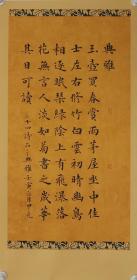 典雅
玉壺買春賞雨茅屋坐中佳
士左右修竹白雲初晴幽鳥
相逐眠琴綠陰上有飛瀑落
花無言人淡如菊書之歲華
其曰可讀